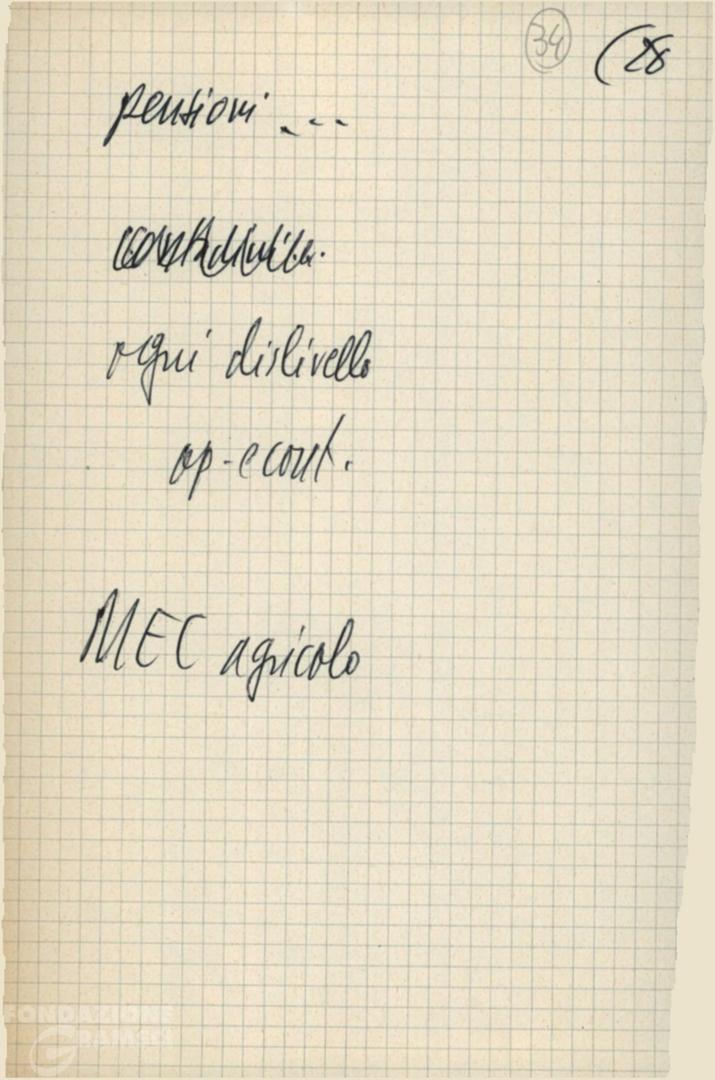 34 (28
pensioni ---
ogni dislivello
op. e cont.
MEC agricolo
FONDAZIONE
GRAMSCI